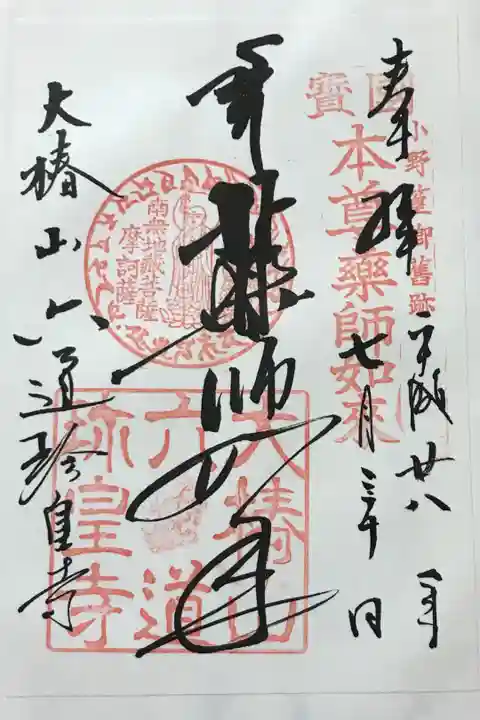 奉拝
平成廿八年
七月三十日
薬師如来
大椿山六道珍皇寺
小野篁卿舊跡
國寶
本尊薬師如来
南無地蔵菩薩
摩訶薩
大椿山
六道
珎皇寺